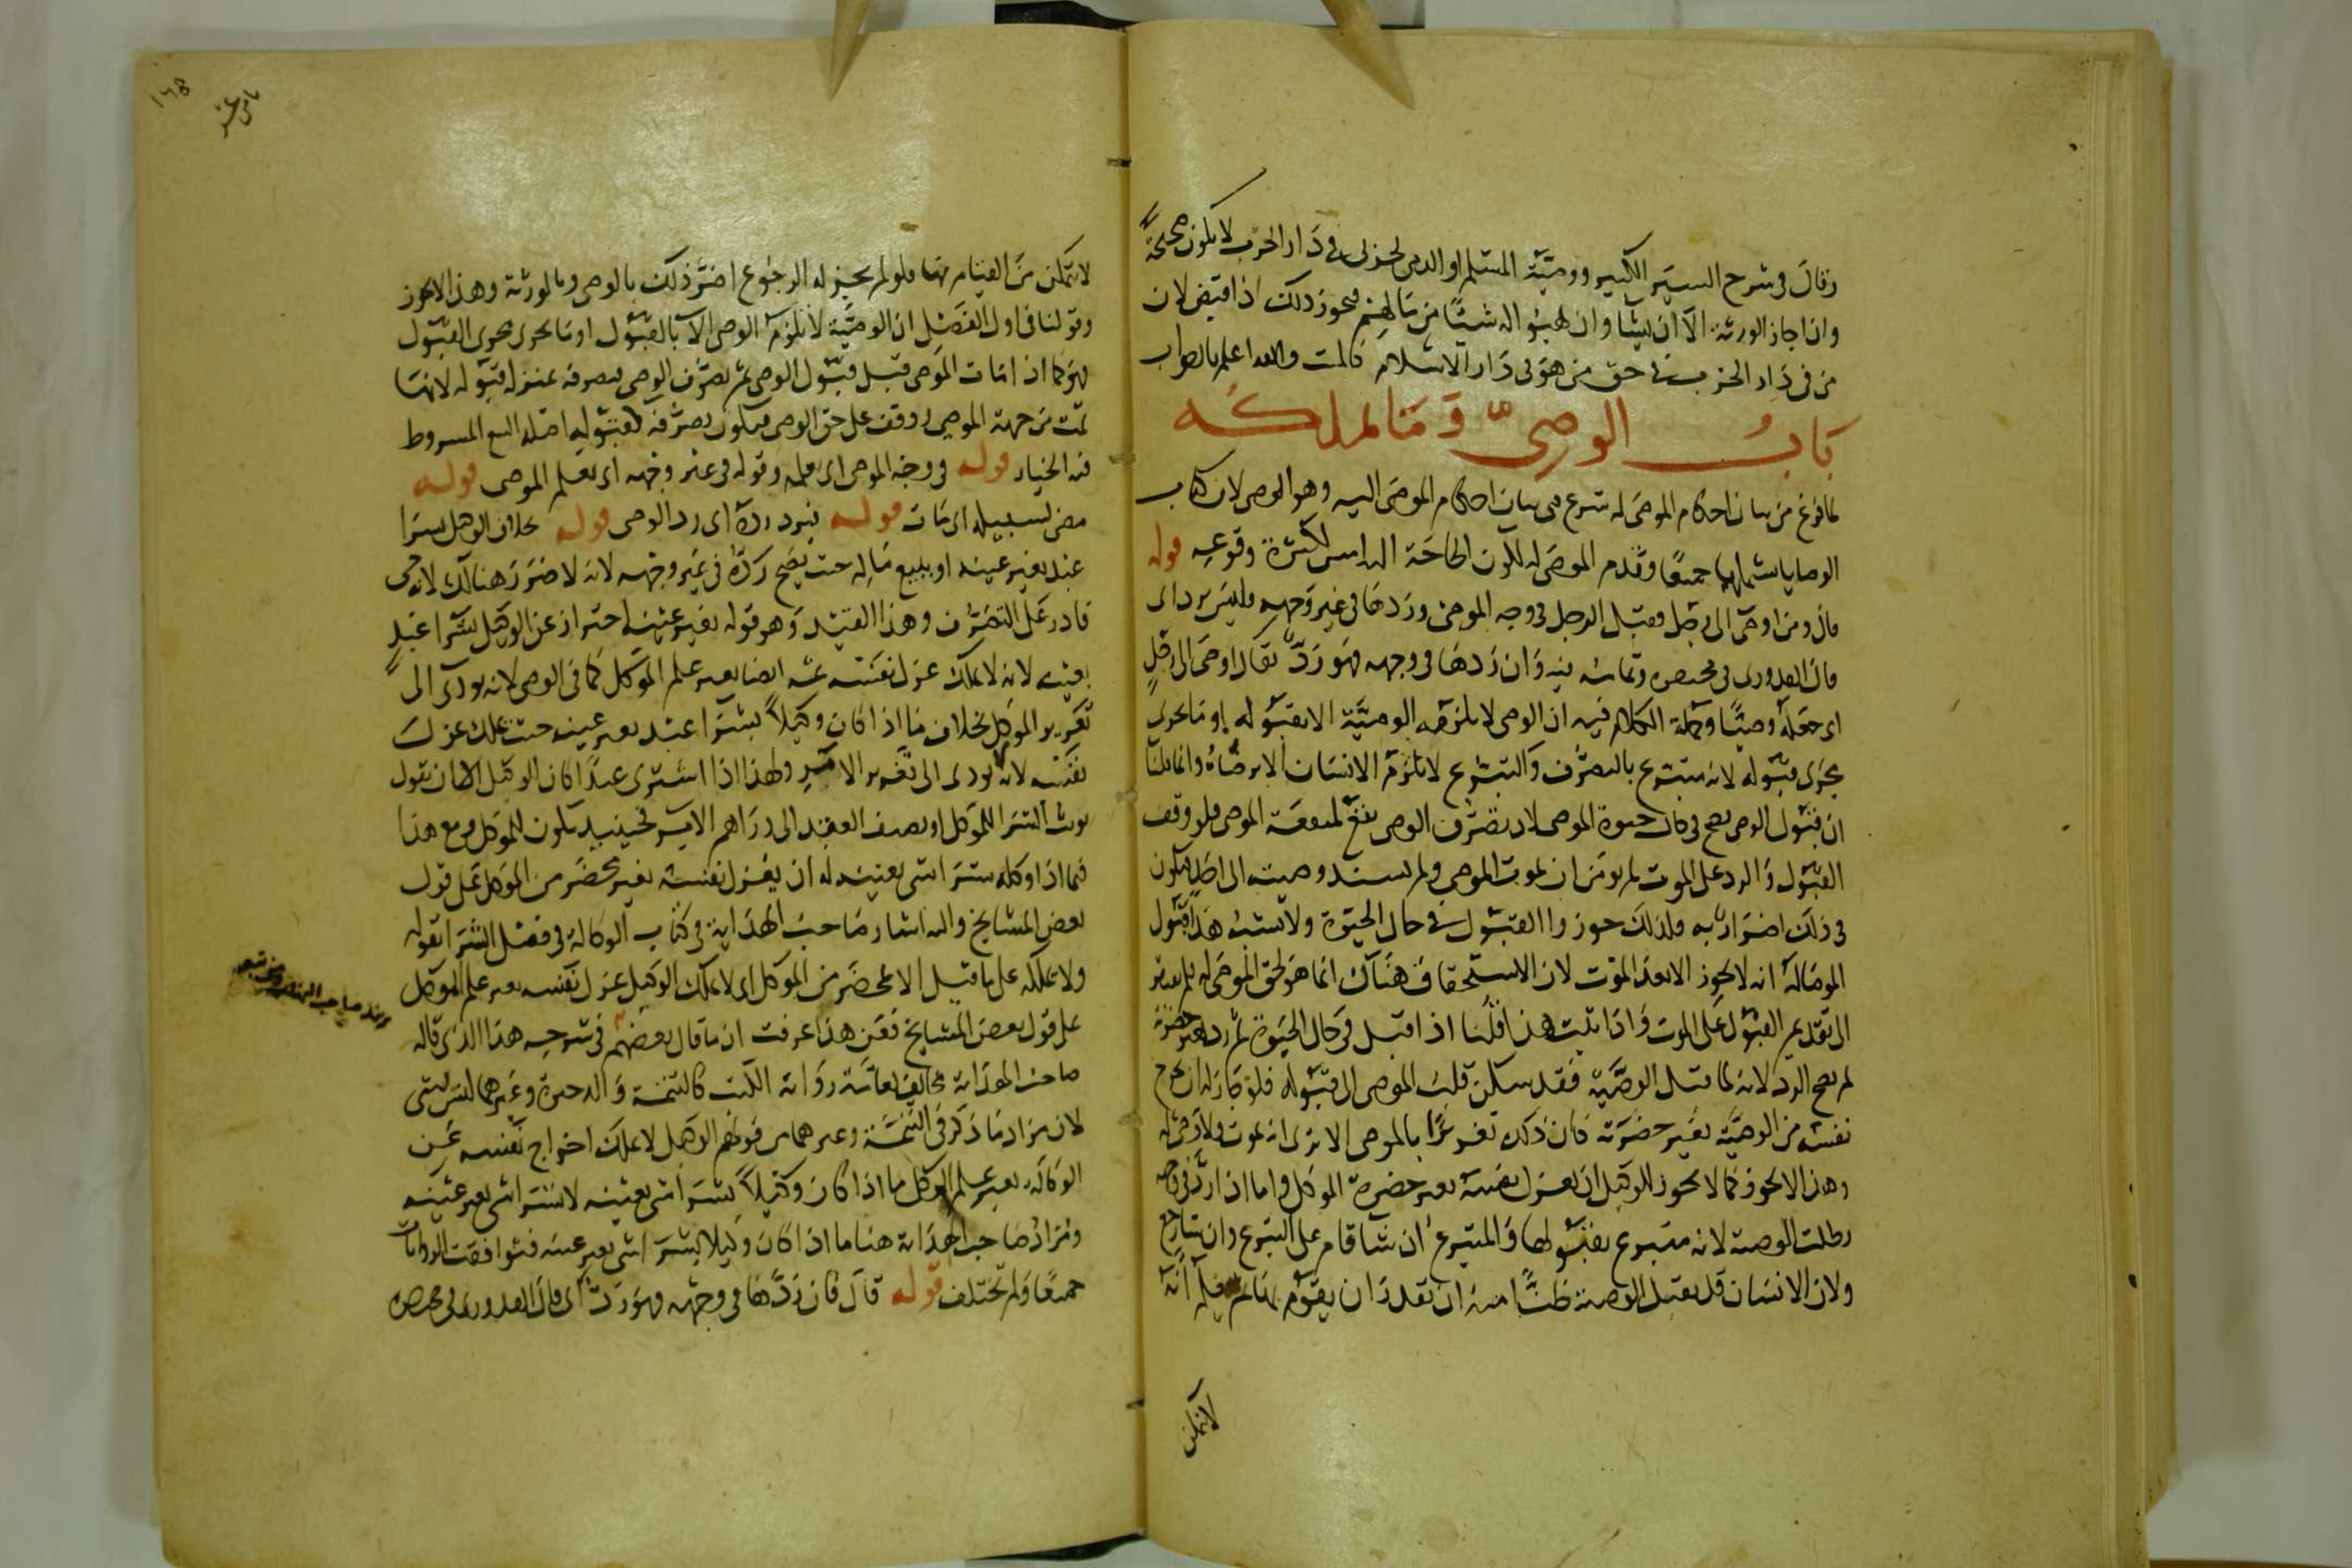 وقال في شرح السير الكبير ووصية المسلم او الذمي لحربي في دار الحرب لا يكون صحيحة
وان اجاز الورثة الا ان يشاوا ان يهبوا له شيئا من مالهم فيجوز ذلك اذا قبض لان
من في دار الحرب في حق من هو في دار الاسلام كالميت والله اعلم بالصواب
باب الوصي وما يملكه
لما فرغ من بيان احكام الموصى له شرع في بيان احكام الموصى اليه وهو الوصي لان كتاب
الوصايا يشملهما جميعا وقدم الموصى له لكون الحاجة اليه امس لكثرة وقوعه قوله
قال ومن اوصى الى رجل فقبل الرجل في وجه الموصي وردها في غير وجهه فليس برد اي
قال القدوري في مختصره وتمامه فيه وان ردها في وجهه فهو رد يقال اوصى الى رجل
اي جعله وصيا وجملة الكلام فيه ان الوصي لا يلزمه الوصية الا بقبوله او ما يجري
مجرى قبوله لانه متبرع بالتصرف والتبرع لا يلزم الانسان الا برضاه وانما قلنا
ان قبول الوصي يصح في حال حيوة الموصي لان تصرف الوصي يقع لمنفعة الموصي فلو وقف
القبول والرد على الموت لم يومن ان يموت الموصي ولم يسند وصيته الى احد فيكون
في ذلك اضرار به فلذلك جوزوا القبول في حال الحيوة ولا يشبه هذا قبول
الموصى له انه لا يجوز الا بعد الموت لان الاستحقاق هناك انما هو لحق الموصى له فلم يفتقر
الى تقديم القبول على الموت واذا ثبت هذا قلنا اذا قبل في حال الحيوة ثم رد بغير حضرته
لم يصح الرد لانه لما قبل الوصية فقد سكن قلب الموصي الى قبوله فلو جاز له ان يخرج
نفسه من الوصية بغير حضرته كان ذلك تغريرا بالموصي الا ترى انه يموت ولا وصي له
وهذا لا يجوز كما لا يجوز للوكيل ان يعزل نفسه بغير حضرة الموكل واما اذا رد في وجهه
بطلت الوصية لانه متبرع بقبولها والمتبرع ان شا قام على التبرع وان شا رجع
ولان الانسان قد يقبل الوصية ظنا منه ان يقدر ان يقوم بها ثم يعلم انه
لا يتمكن
١٦٨
لا يتمكن من القيام بها فلو لم يجز له الرجوع اضر ذلك بالوصي وبالورثة وهذا لا يجوز
وقولنا في اول الفصل ان الوصية لا يلزم الوصي الا بالقبول او ما يجري مجرى القبول
فهو كما اذا مات الموصي قبل قبول الوصي ثم تصرف الوصي فتصرفه بمنزلة قبوله لانها
تمت من جهة الموصي ووقف على حق الوصي فيكون تصرفه كقبوله اصله البيع المشروط
فيه الخيار قوله في وجه الموصي اي بعلمه وقوله في غير وجهه اي بغير علم الموصي قوله
مضى لسبيله اي مات قوله فيرد رده اي رد الوصي قوله بخلاف الوكيل بشرا
عبد بغير عينه او ببيع ماله حيث يصح رده في غير وجهه لانه لا ضرر هنالك لانه حي
قادر على التصرف وهذا القيد وهو قوله بغير عينه احتراز عن الوكيل بشرا عبد
بعينه لانه لا يملك عزل نفسه ثمه ايضا بغير علم الموكل كما في الوصي لانه يودي الى
تغرير الموكل بخلاف ما اذا كان وكيلا بشرا عبد بغير عينه حيث يملك عزل
نفسه لانه لا يودي الى تغرير الامر ولهذا اذا اشترى عبدا كان للوكيل الا ان يقول
نويت الشرا للموكل او يضيف العقد الى دراهم الامر فحينيد يكون للموكل ومع هذا
فيما اذا وكله بشرا شي بعينه له ان يعزل نفسه بغير محضر من الموكل على قول
بعض المشايخ واليه اشار صاحب الهداية في كتاب الوكالة في فصل الشرا بقوله
ولا يملكه على ما قيل الا بمحضر من الموكل اي لا يملك الوكيل عزل نفسه بغير علم الموكل
على قول بعض المشايخ فعن هذا عرفت ان ما قال بعضهم في شرحه هذا الذي قاله
صاحب الهداية مخالف لعامة رواية الكتب كالتتمة والذخيرة وغيرهما ليس بشي
لان مراد ما ذكر في التتمة وغيرهما من قولهم الوكيل لا يملك اخراج نفسه عن
الوكالة بغير علم الموكل ما اذا كان وكيلا بشرا شي بعينه لا بشرا شي بغير عينه
ومراد صاحب الهداية هنا ما اذا كان وكيلا بشرا شي بغير عينه فتوافقت الروايات
جميعا ولم تختلف قوله قال فان ردها في وجهه فهو رد اي قال القدوري في مختصره